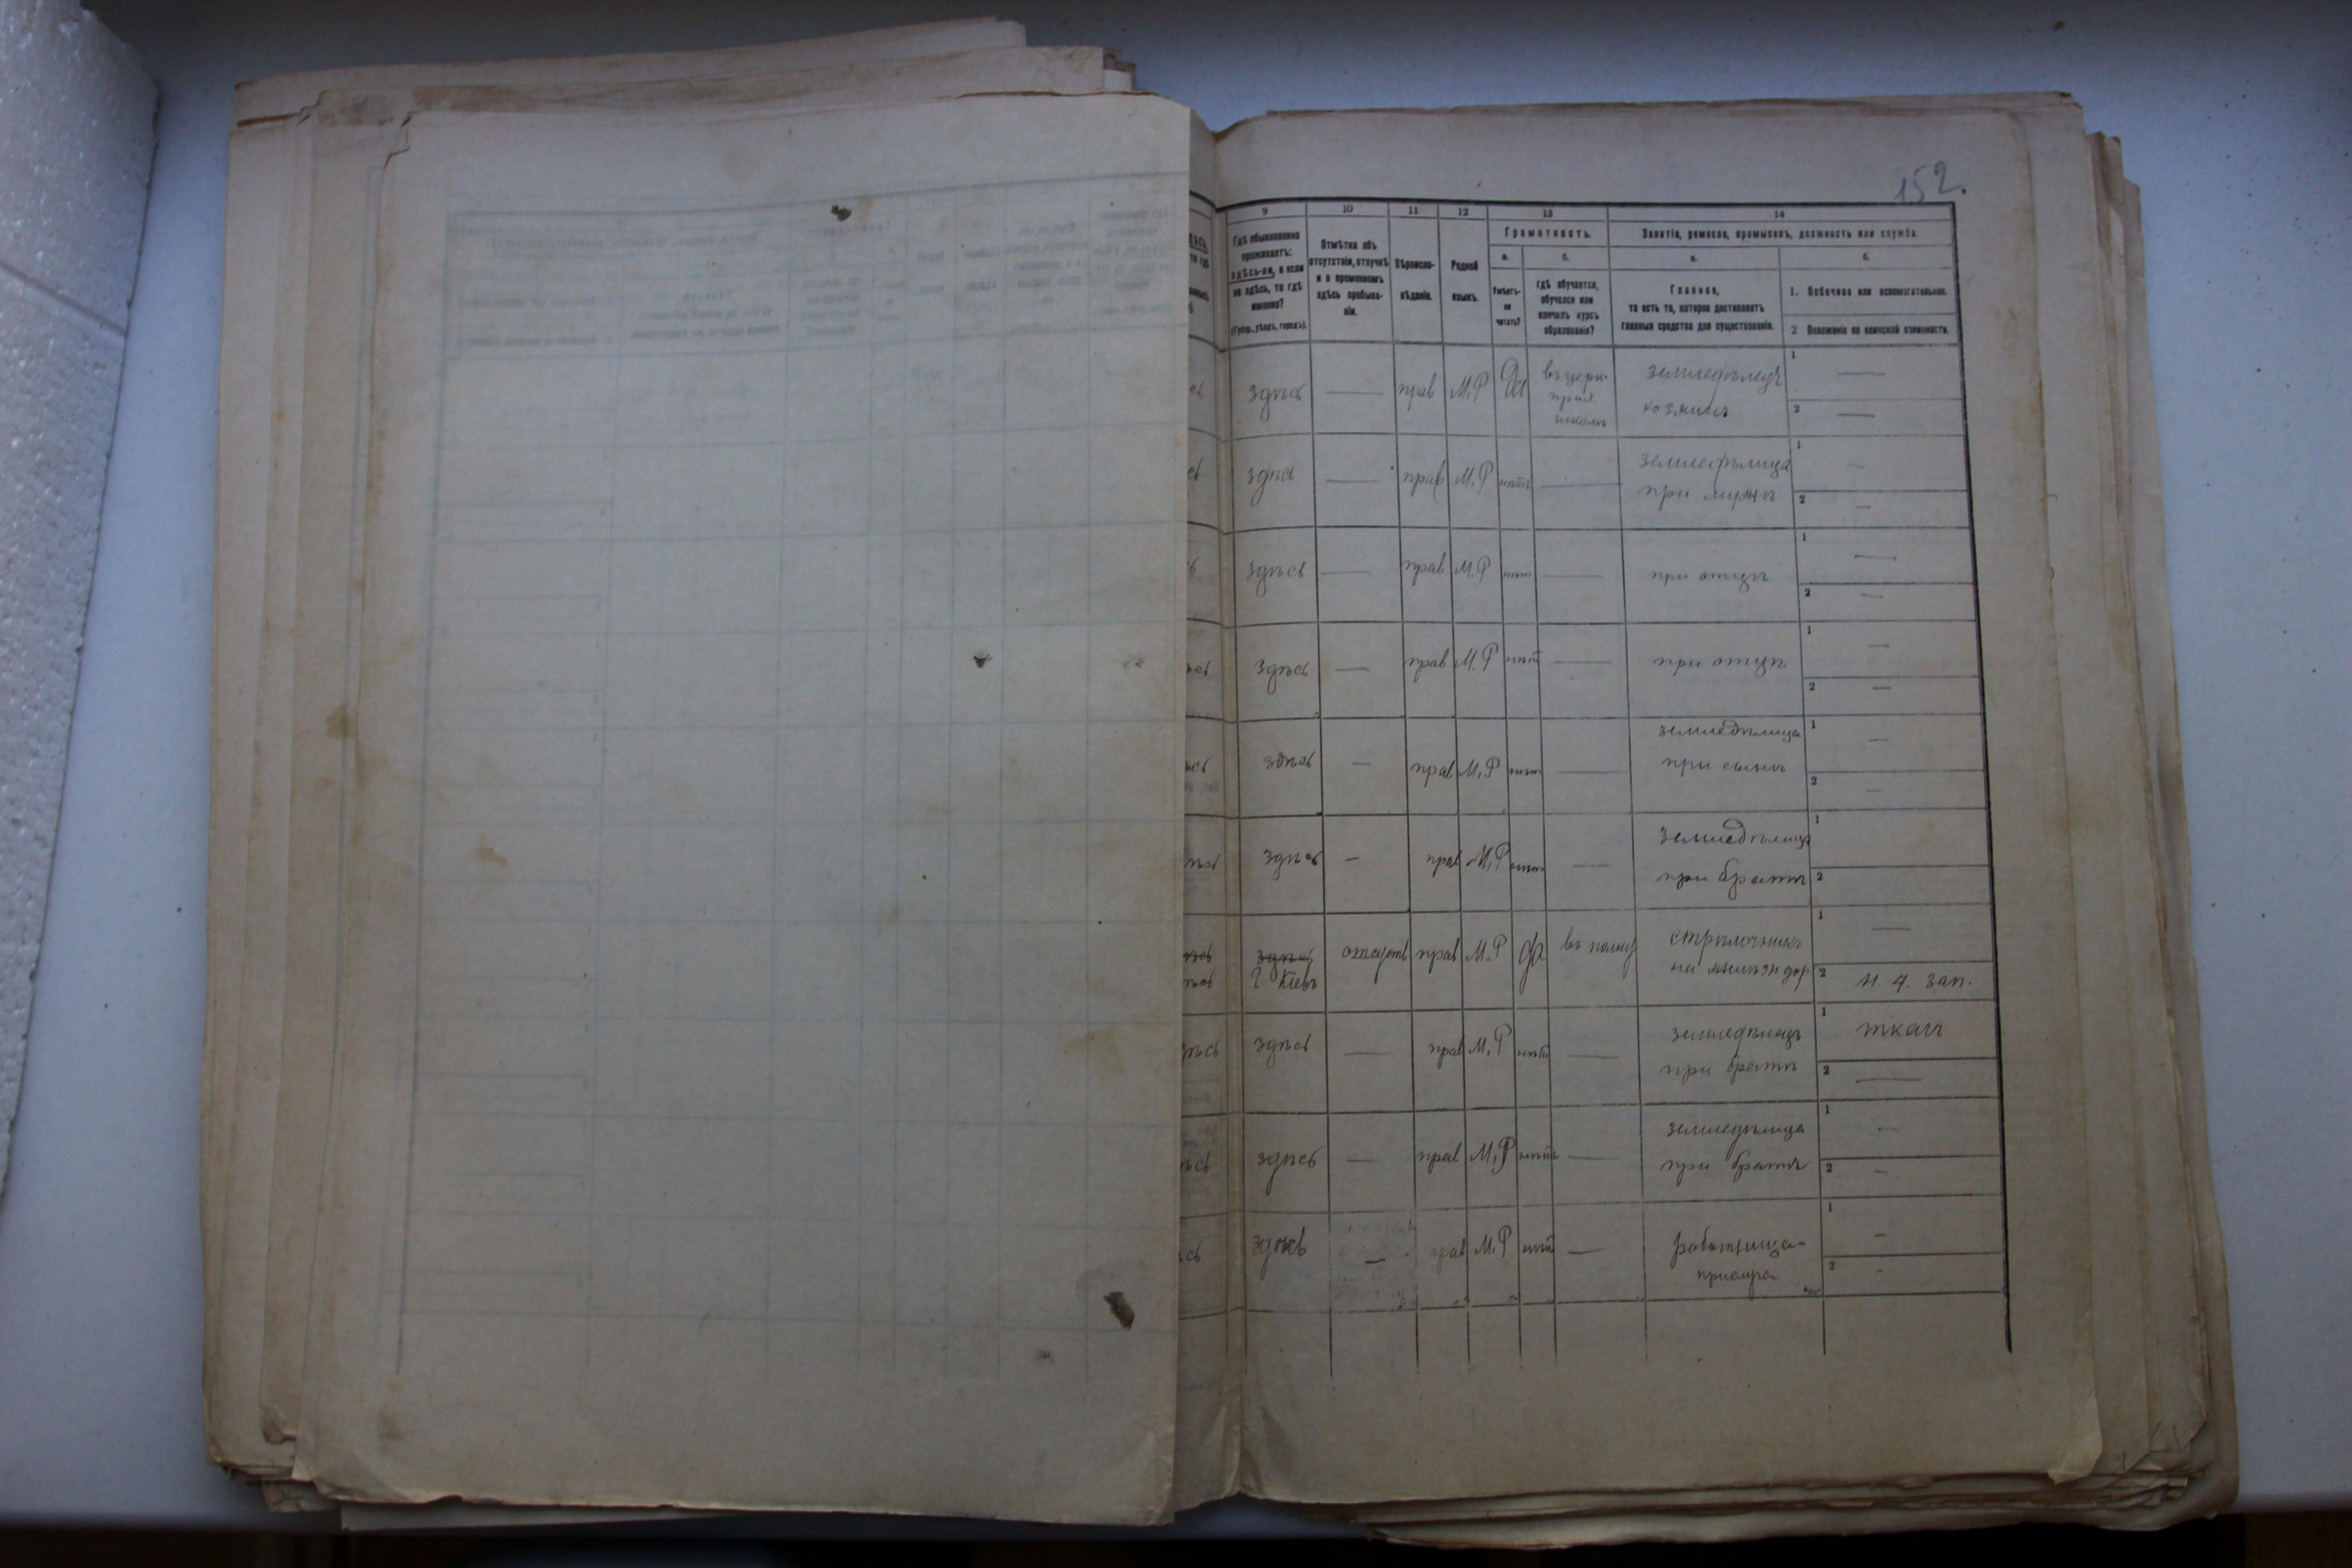 152.
9 10 11 12 13 14
Гдѣ обыкновенно проживаетъ: здѣсь-ли, а если не здѣсь, то гдѣ именно?
(Губер., уѣздъ, городъ).
Отмѣтка объ отсутствіи, отлучкѣ и о временномъ здѣсь пребываніи.
Вѣроисповѣданіе.
Родной языкъ.
Грамотность.
а. Умѣетъ-ли читать?
б. гдѣ обучается, обучался или кончилъ курсъ образованія?
Занятіе, ремесло, промыселъ, должность или служба.
а. Главное,
то есть то, которое доставляетъ главныя средства для существованія.
б.
1. Побочное или вспомогательное.
2 Положеніе по воинской повинности.
здѣсь — прав М.Р Да въ церк. прих школѣ земледѣлецъ хозяинъ 1 — 2 —
здѣсь — прав М.Р нѣтъ — земледѣлица при мужѣ 1 — 2 —
здѣсь — прав М.Р нѣт — при отцѣ 1 — 2 —
здѣсь — прав М.Р нѣт — при отцѣ 1 — 2 —
здѣсь — прав М.Р нѣт — земледѣлица при сынѣ 1 — 2 —
здѣсь — прав М.Р нѣт — земледѣлица при братѣ 1 2
здѣсь г. Кіевъ отсутств прав М.Р да въ полку стрѣлочникъ на желѣзн дор 1 — 2 н. ч. зап.
здѣсь — прав М.Р нѣт — земледѣлецъ при братѣ 1 ткачъ 2 —
здѣсь — прав М.Р нѣтъ — земледѣлица при братѣ 1 — 2 —
здѣсь — прав М.Р нѣт — работница- 1 — 2 -